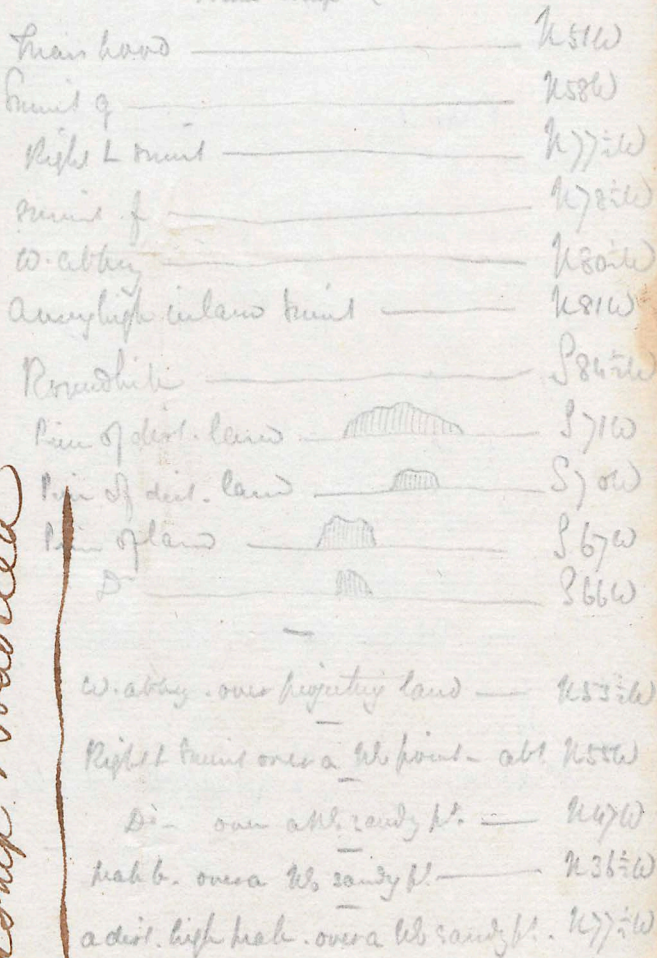 Friars hood N51W
Summit g N58W
Right L summit N77½W
Summit f N78½W
W. abbey N80½W
A very high inland summit N81W
Roundhill S84½W
of dist. land S71W
of dist. land S70W
of land S67W
Do S66W
W. abbey over projecting land N53½W
Right L summit over a Wh point - abt N55W
Do - over a Wh sandy pt. N47W
peak b. over a Wh sandy pt. N36½W
a dist. high peak over a Wh sandy pt. N77½W